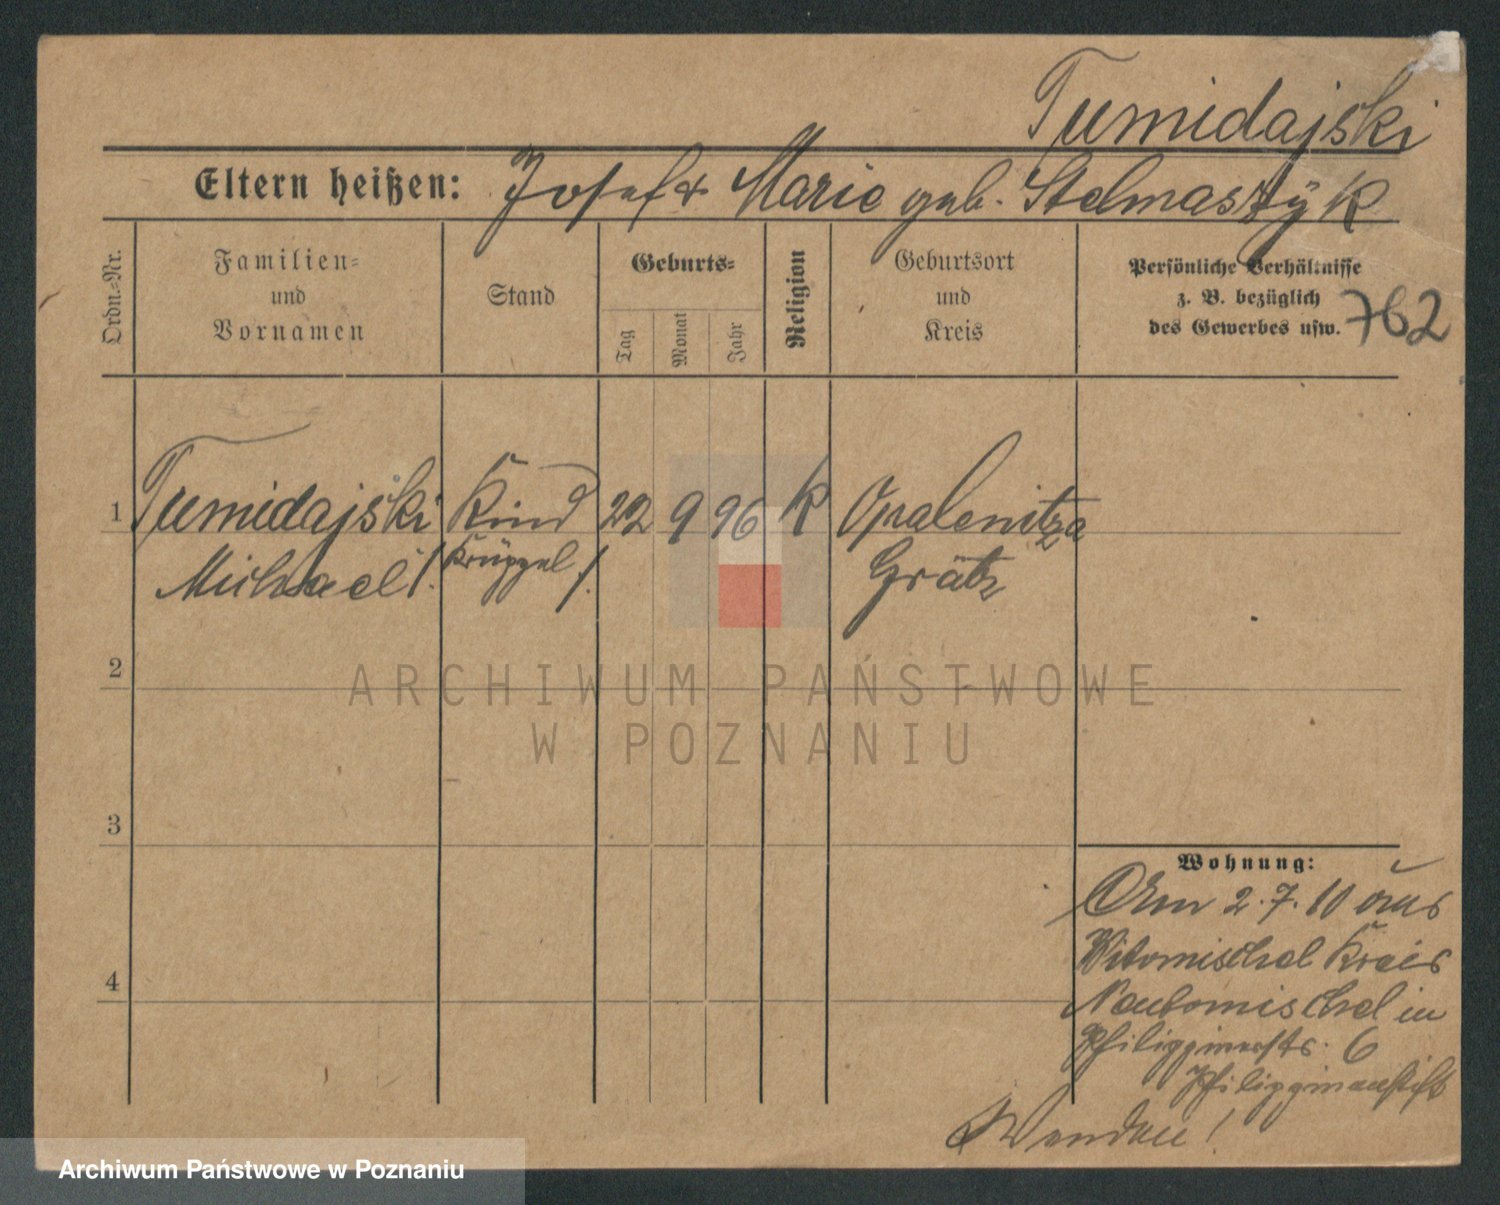 Tumidajski
Eltern heißen: Josef & Marie geb. Stelmaszÿk
Ordn.-Nr.
Familien-
und
Vornamen
Stand
Geburts-
Tag
Monat
Jahr
Religion
Geburtsort
und
Kreis
Persönliche Verhältnisse
z. B. bezüglich
des Gewerbes usw.
762
1 Tumidajski Kind 22 9 96 K Opalenitza
Michael /. Krüppel /. Grätz
2
3
4
Wohnung:
Am 2.7.10 aus
Witomischel Kreis
Neutomischel in
Philippinenstr. 6
Philippinenstift
Wenden!
ARCHIWUM PAŃSTWOWE
W POZNANIU
Archiwum Państwowe w Poznaniu